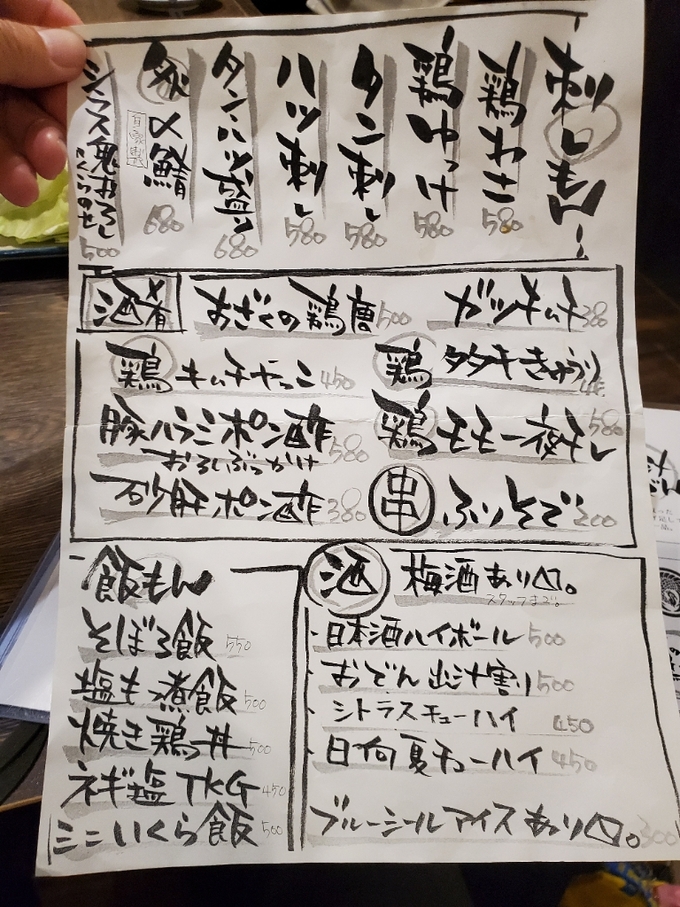 刺しもん
鶏わさ 580
鶏ゆっけ 580
タン刺し 580
ハツ刺し 580
タンハツ盛り 680
自家製 〆鯖 680
シラス鬼おろし 500
酒肴
おざくの鶏唐 500
ガツキムチ 380
鶏キムチやっこ 450
鶏タタキきゅうり
豚ハラミポン酢 580
おろしぶっかけ
鶏モモ一夜干し 580
砂肝ポン酢 380
串 ふりそで 200
飯もん
そぼろ飯 550
塩もつ煮飯 500
焼き鶏丼 500
ネギ塩TKG 450
ミニいくら飯 500
酒 梅酒あり〼。
スタッフまで。
・日本酒ハイボール 500
・おでん出汁割り 500
・シトラスチューハイ 450
・日向夏チューハイ 450
ブルーシールアイスあり〼。300